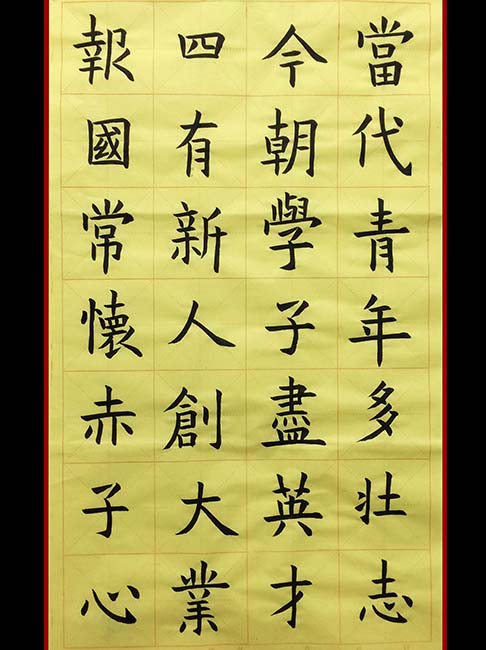 當代青年多壯志
今朝學子盡英才
四有新人創大業
報國常懷赤子心